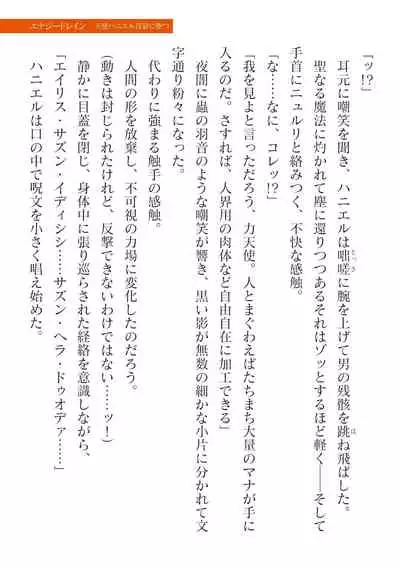 エナジードレイン 天使ハニエル淫辱に堕つ
「ッ!?」
耳元に嘲笑を聞き、ハニエルは咄嗟に腕を上げて男の残骸を跳ね飛ばした。
聖なる魔法に灼かれて塵に還りつつあるそれはゾッとするほど軽く――そして
手首にニュルリと絡みつく、不快な感触。
「な……なに、コレッ!?」
「我を見よと言っただろう、力天使。人とまぐわえばたちまち大量のマナが手に
入るのだ。さすれば、人界用の肉体など自由自在に加工できる」
夜闇に蟲の羽音のような嘲笑が響き、黒い影が無数の細かな小片に分かれて文
字通り粉々になった。
代わりに強まる触手の感触。
人間の形を放棄し、不可視の力場に変化したのだろう。
(動きは封じられたけれど、反撃できないわけではない……ッ!)
静かに目蓋を閉じ、身体中に張り巡らされた経絡を意識しながら、
ハニエルは口の中で呪文を小さく唱え始めた。
「エイリス・サズン・イディシシ……サズン・ヘラ・ドゥオデァ……」